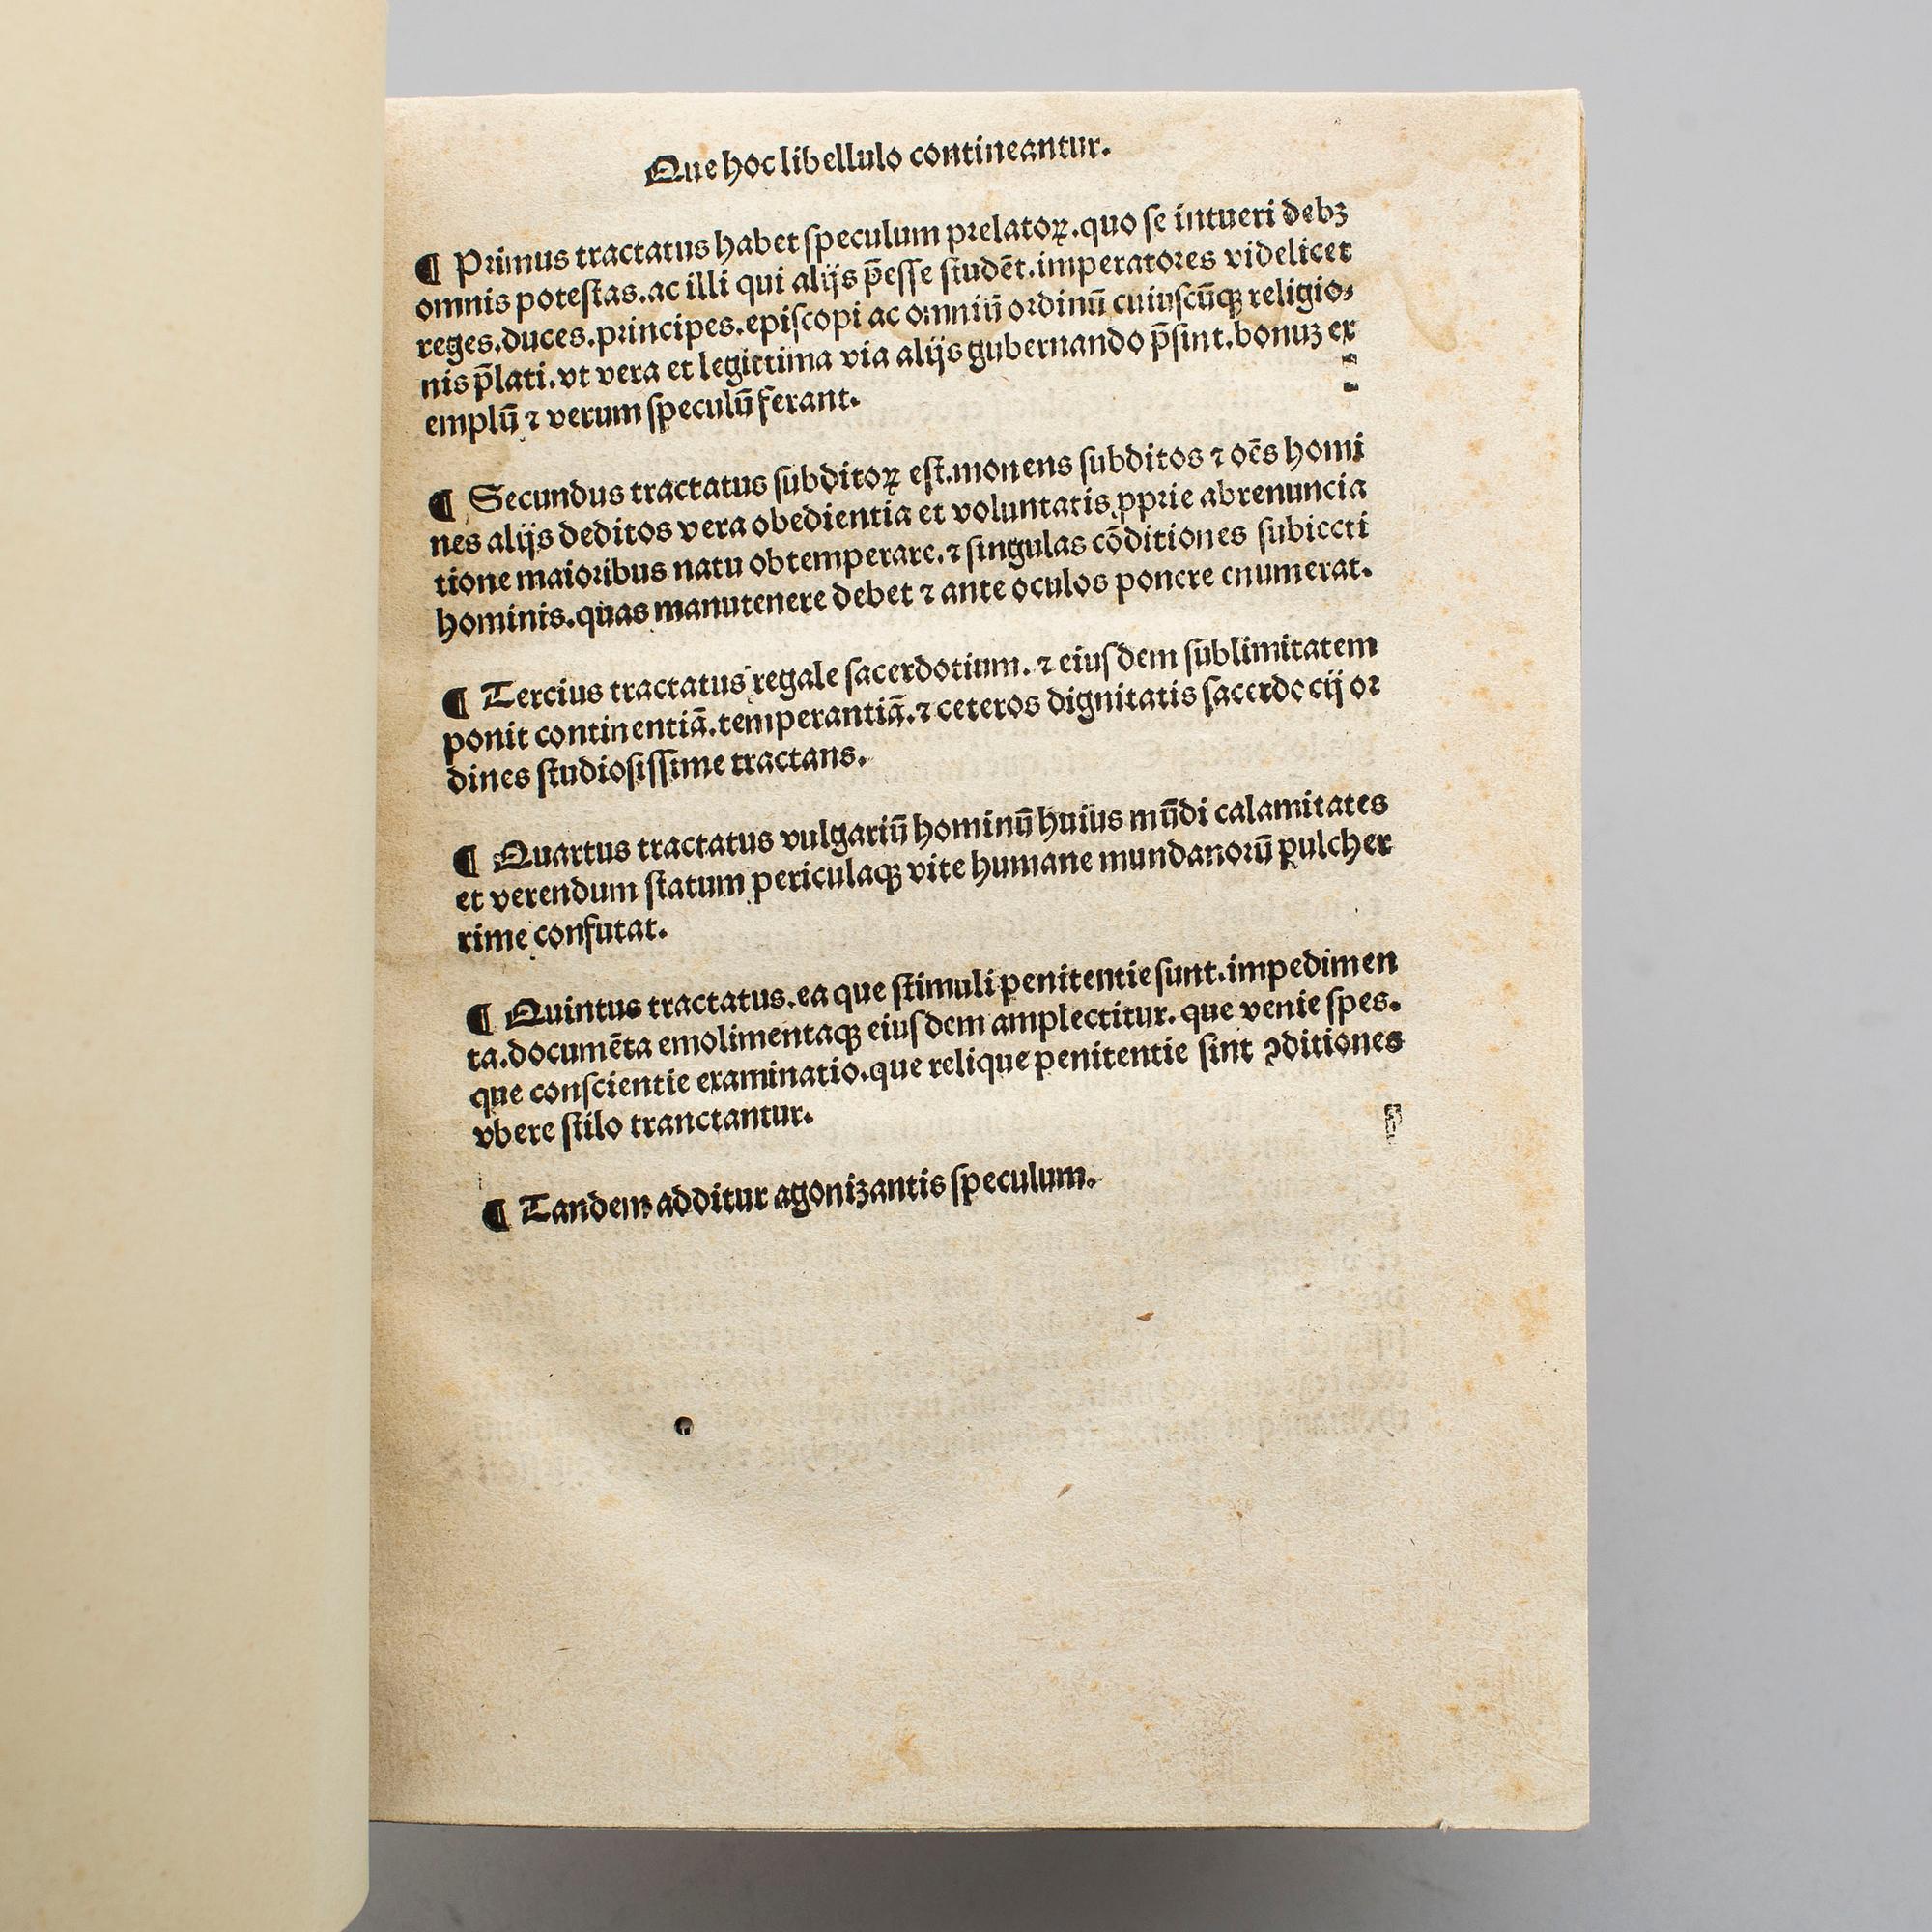 Que hoc libellulo contineantur.
¶ Primus tractatus habet speculum prelatoꝝ.quo se intueri debꝫ
omnis potestas.ac illi qui alijs p̄esse studēt.imperatores videlicet
reges.duces.principes.episcopi ac omniū ordinū cuiuscūqꝫ religio⸗
nis p̄lati.vt vera et legittima via alijs gubernando p̄sint.bonuꝫ ex
emplū ⁊ verum speculū ferant.
¶ Secundus tractatus subditoꝝ est.monens subditos ⁊ oēs homi
nes alijs deditos vera obedientia et voluntatis ꝓprie abrenuncia
tione maioribus natu obtemperare.⁊ singulas cōditiones subiecti
hominis.quas manutenere debet ⁊ ante oculos ponere enumerat.
¶ Tercius tractatus regale sacerdotium. ⁊ eiusdem sublimitatem
ponit continentiā.temperantiā.⁊ ceteros dignitatis sacerdocij or
dines studiosissime tractans.
¶ Quartus tractatus vulgariū hominū huius mūdi calamitates
et verendum statum periculaqꝫ vite humane mundanorū pulcher
rime confutat.
¶ Quintus tractatus.ea que stimuli penitentie sunt.impedimen
ta.documēta emolimentaqꝫ eiusdem amplectitur. que venie spes.
que conscientie examinatio.que relique penitentie sint ꝯditiones
vbere stilo tranctantur.
¶ Tandem additur agonizantis speculum.